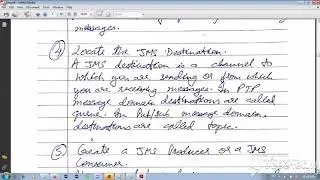 messages.
④ Locate the JMS Destination.
A JMS destination is a channel to
which you are sending or from which
you are receiving messages. In PTP
message domain destinations are called
queue. In Publish message domain,
destinations are called topic.
⑤ Create a JMS Producer or a JMS
Consumer.